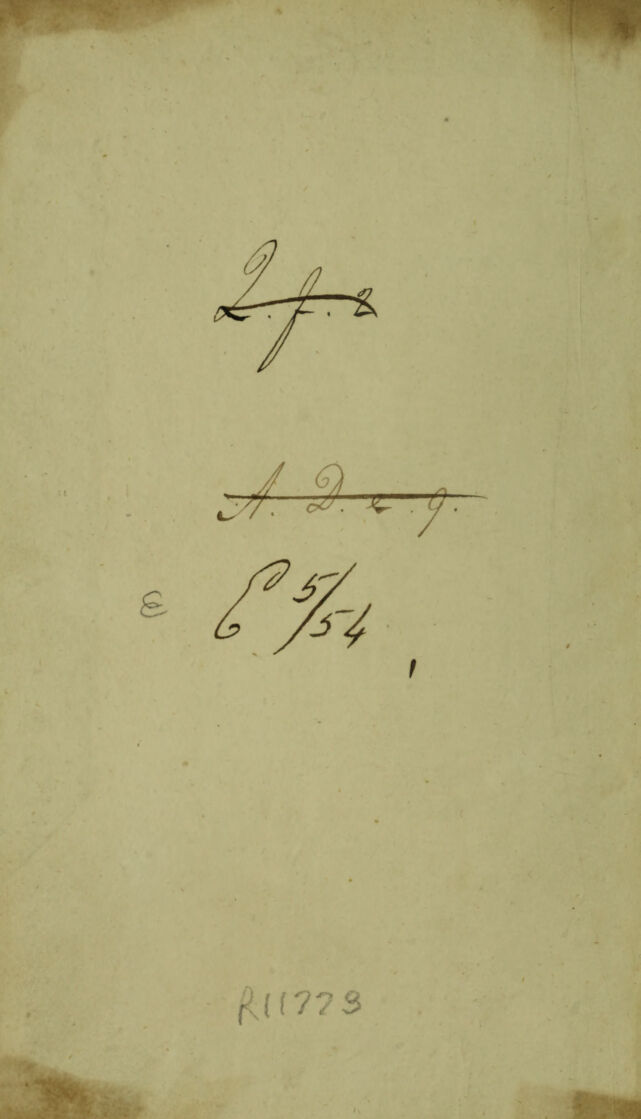 2. f. 2
A. D. e. 9.
ε E 5/54
R11773